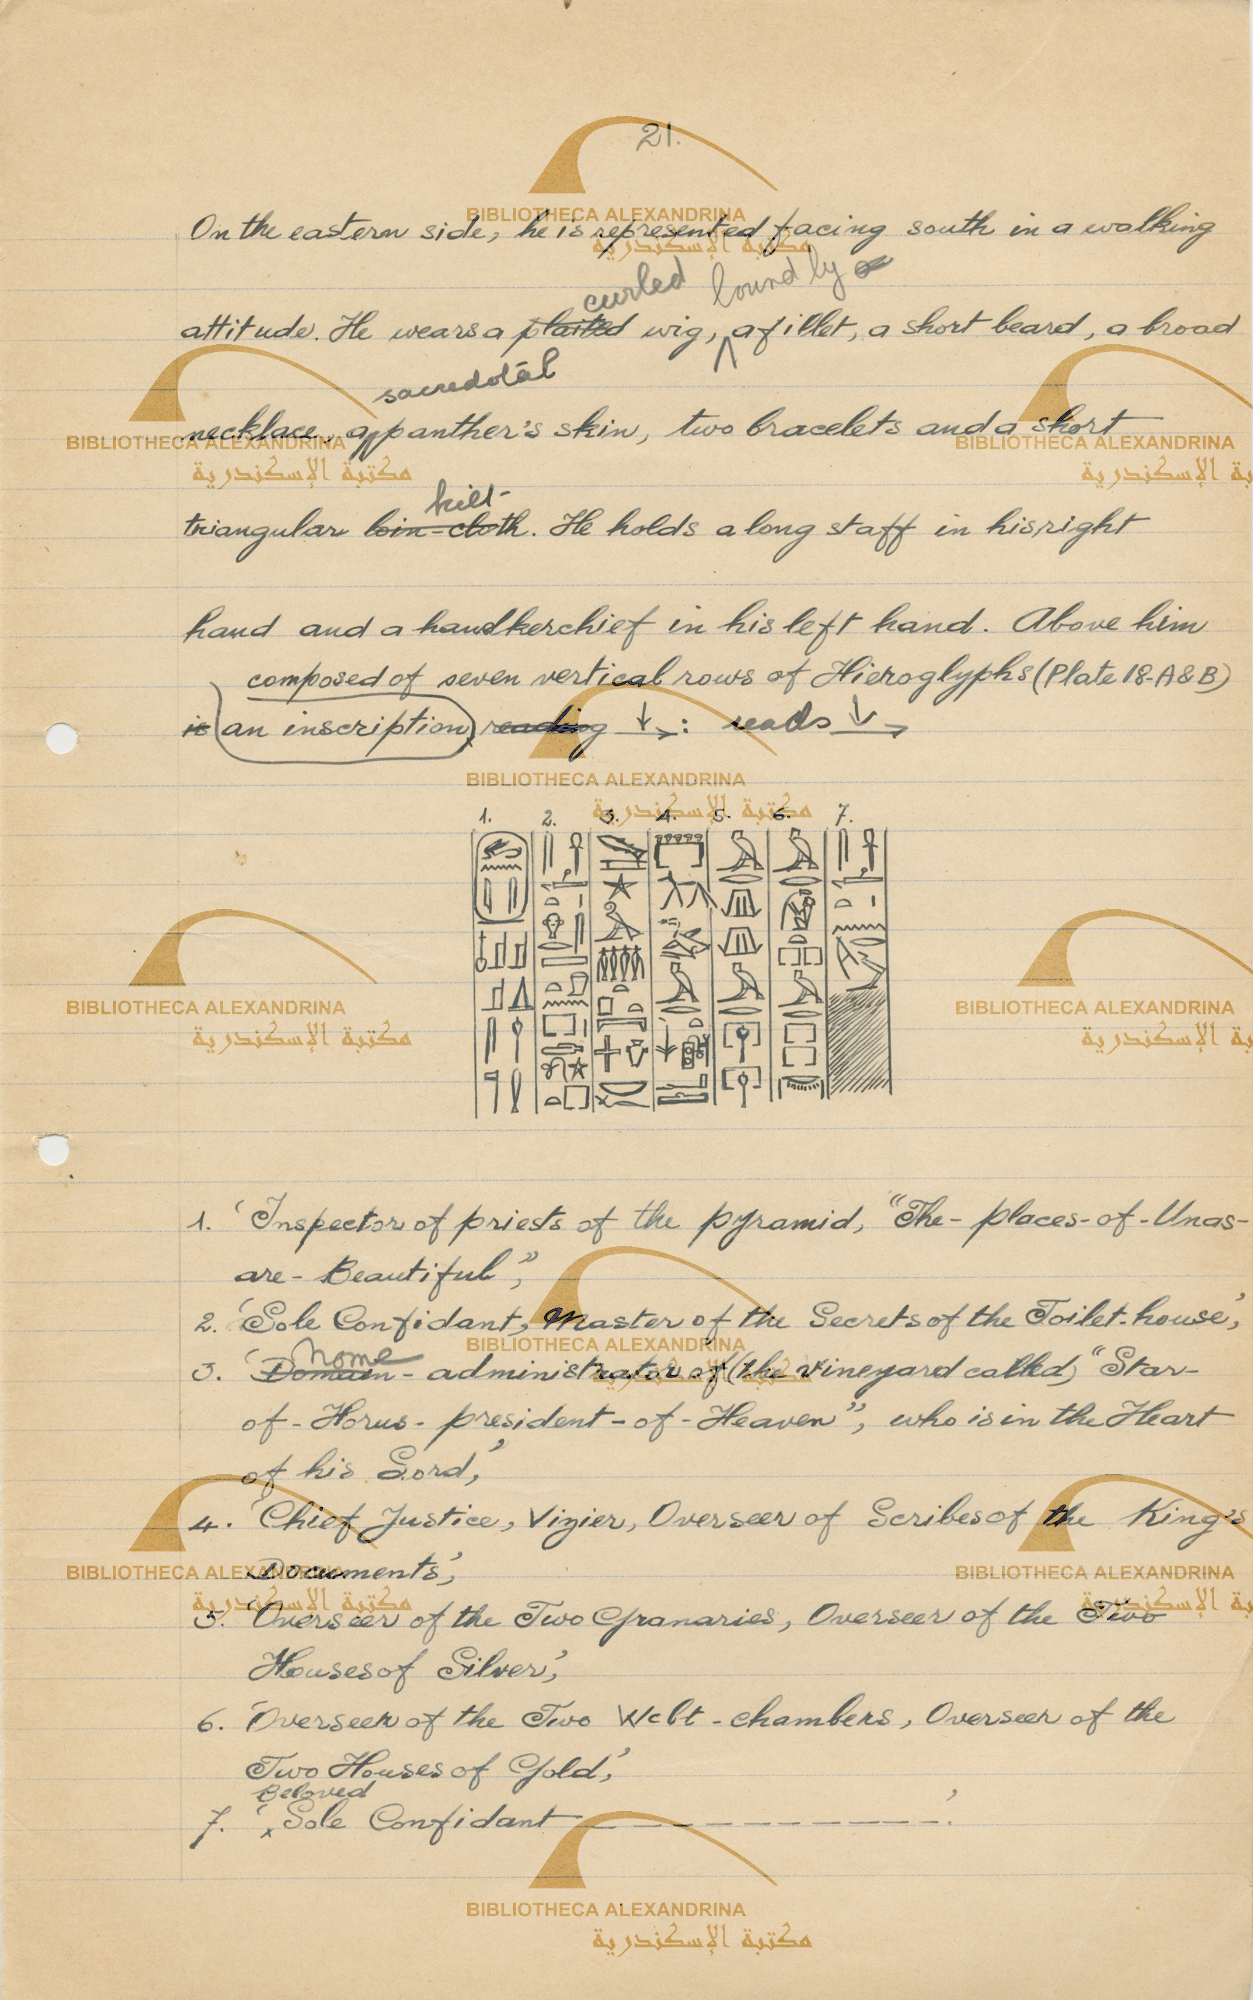 21.
On the eastern side, he is represented facing south in a walking
curled bound by
attitude. He wears a plaited wig, a fillet, a short beard, a broad
sacredotal
necklace, a panther's skin, two bracelets and a short
kilt
triangular loin-cloth. He holds a long staff in his right
hand and a handkerchief in his left hand. Above him
composed of seven vertical rows of Hieroglyphs (Plate 18-A&B)
is an inscription reading ↓→: reads ↓→
1. 2. 3. 4. 5. 6. 7.
1. 'Inspector of priests of the pyramid, "The-places-of-Unas-
are-Beautiful",'
2. 'Sole Confidant, Master of the Secrets of the Toilet-house,'
Nome
3. 'Domain-administrator of (the vineyard called) "Star-
of-Horus-president-of-Heaven", who is in the Heart
of his Lord,'
4. 'Chief Justice, Vizier, Overseer of Scribes of the King's
Documents',
5. 'Overseer of the Two Granaries, Overseer of the Two
Houses of Silver,'
6. 'Overseer of the Two Wcbt-chambers, Overseer of the
Two Houses of Gold,'
Beloved
7. 'x Sole Confidant — — — — — — — — .'
BIBLIOTHECA ALEXANDRINA
مكتبة الإسكندرية